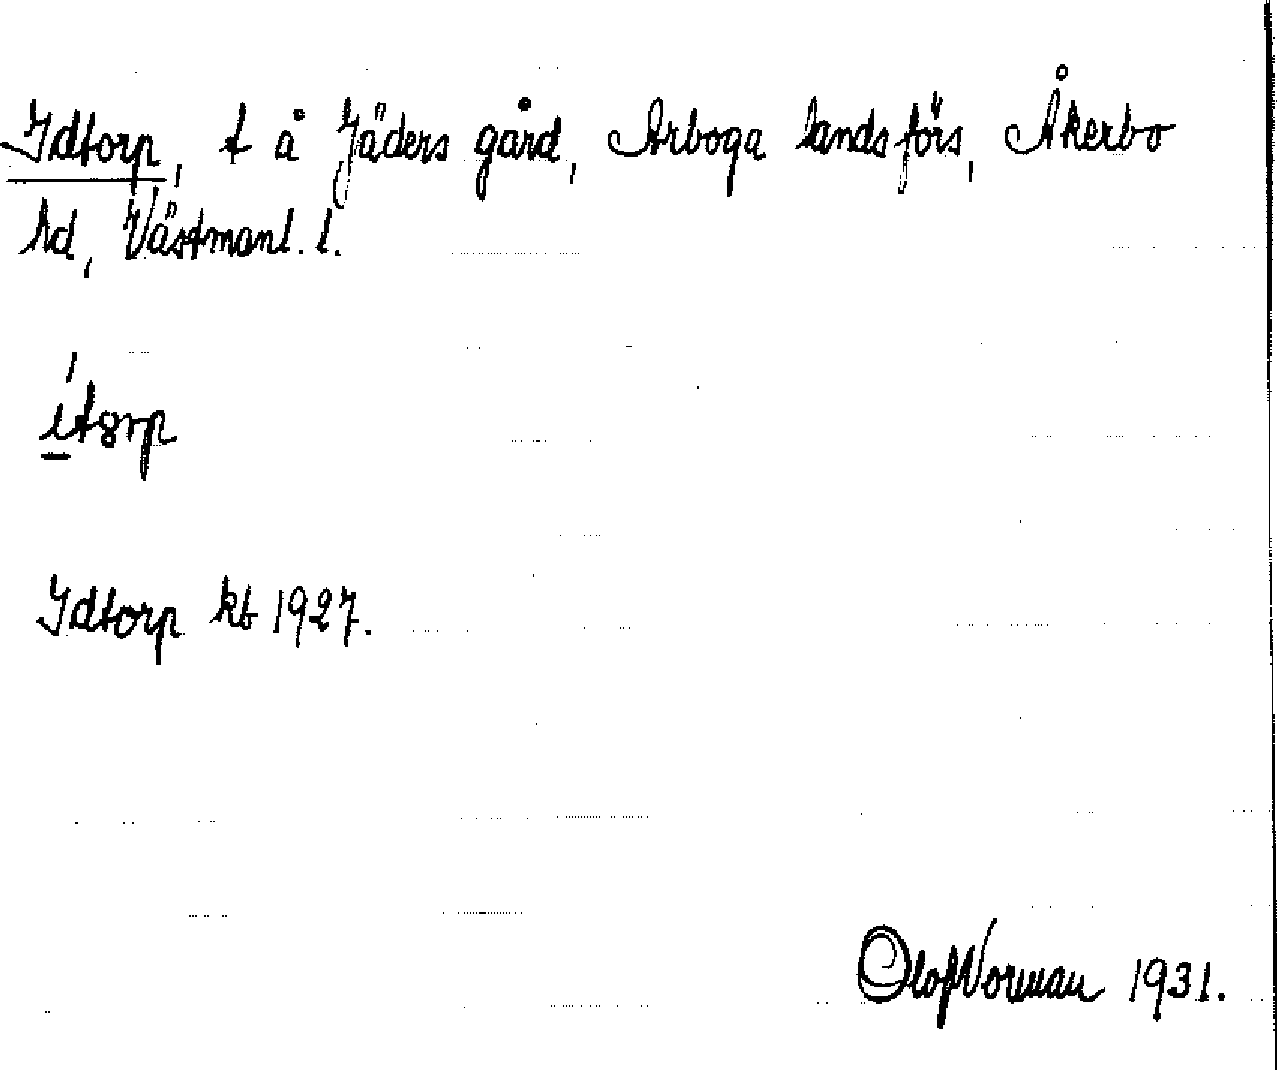 Idtorp, t å Jäders gård, Arboga landsförs, Åkerbo
hd, Västmanl. l.
ítȣrp
Idtorp kb 1927.
Olof Norman 1931.